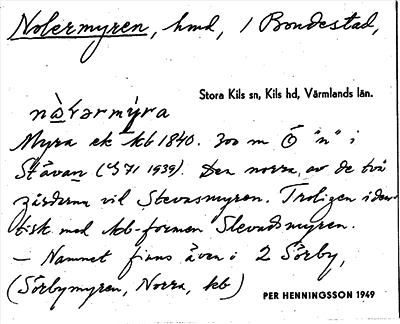 Nolermyren, hmd, 1 Bondestad,
Stora Kils sn, Kils hd, Värmlands län.
Myra ek kb 1840. 300 m Ö "n" i
Stävan (G 71 1939). Den norra, av de två
gärderna vil Stevasmyren. Troligen iden-
tisk med kb-formen Slevadsmyren.
— Namnet finns även i 2 Sörby,
(Sörbymyren, Norra, kb)
PER HENNINGSSON 1949